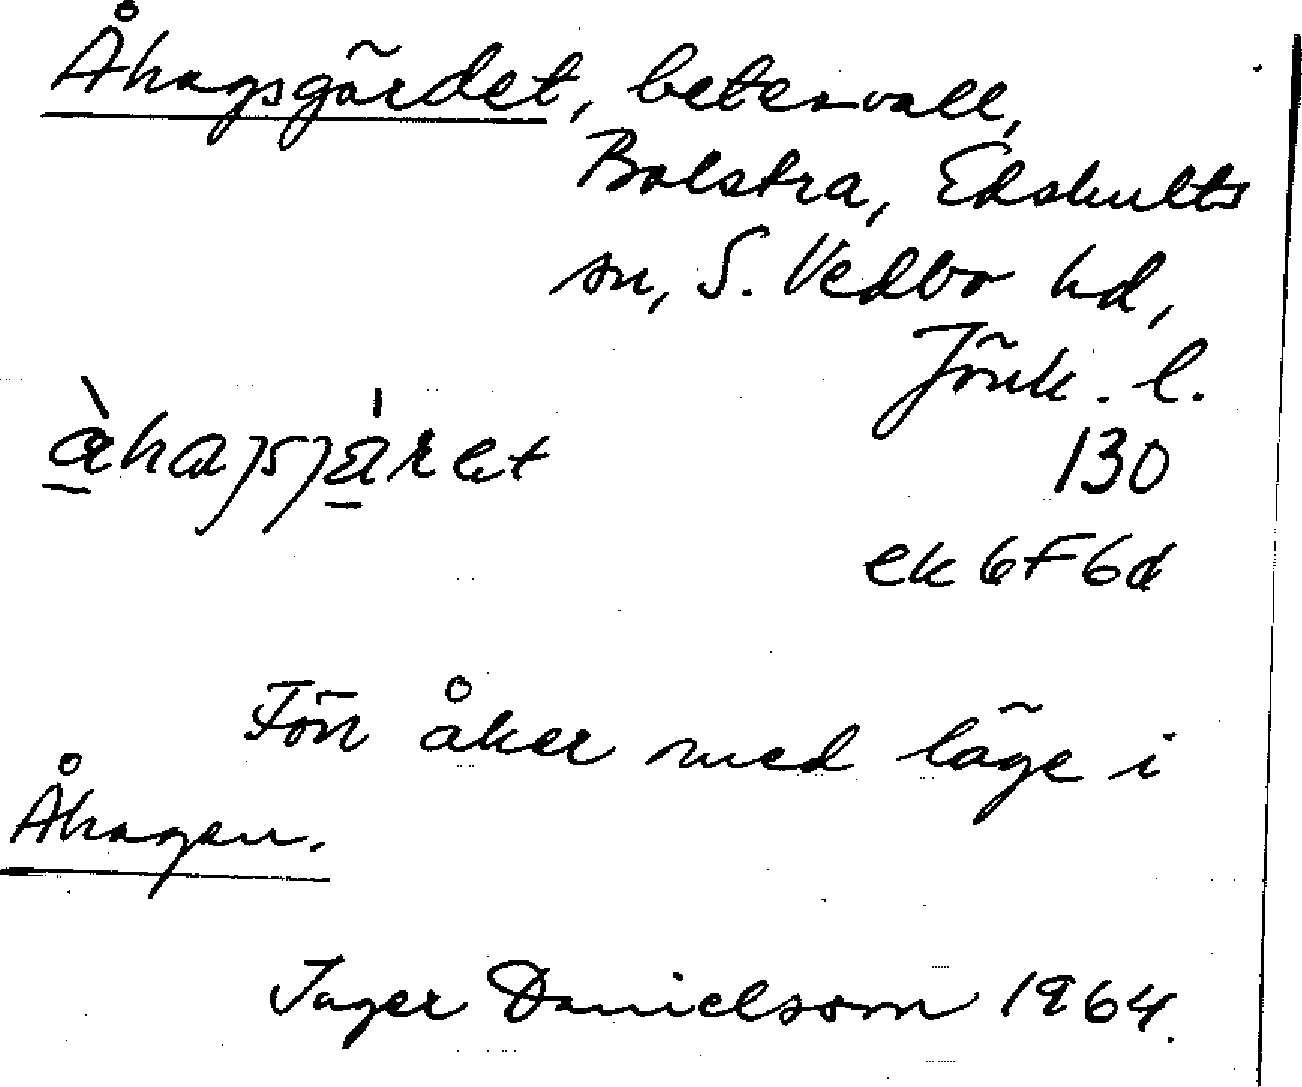 Åhagsgärdet, betesvall,
Bolstra, Edshults
sn, S. Vedbo hd,
Jönk. l.
130
ek 6F6d
Förr åker med läge i
Åhagen.
Inger Danielsson 1964.